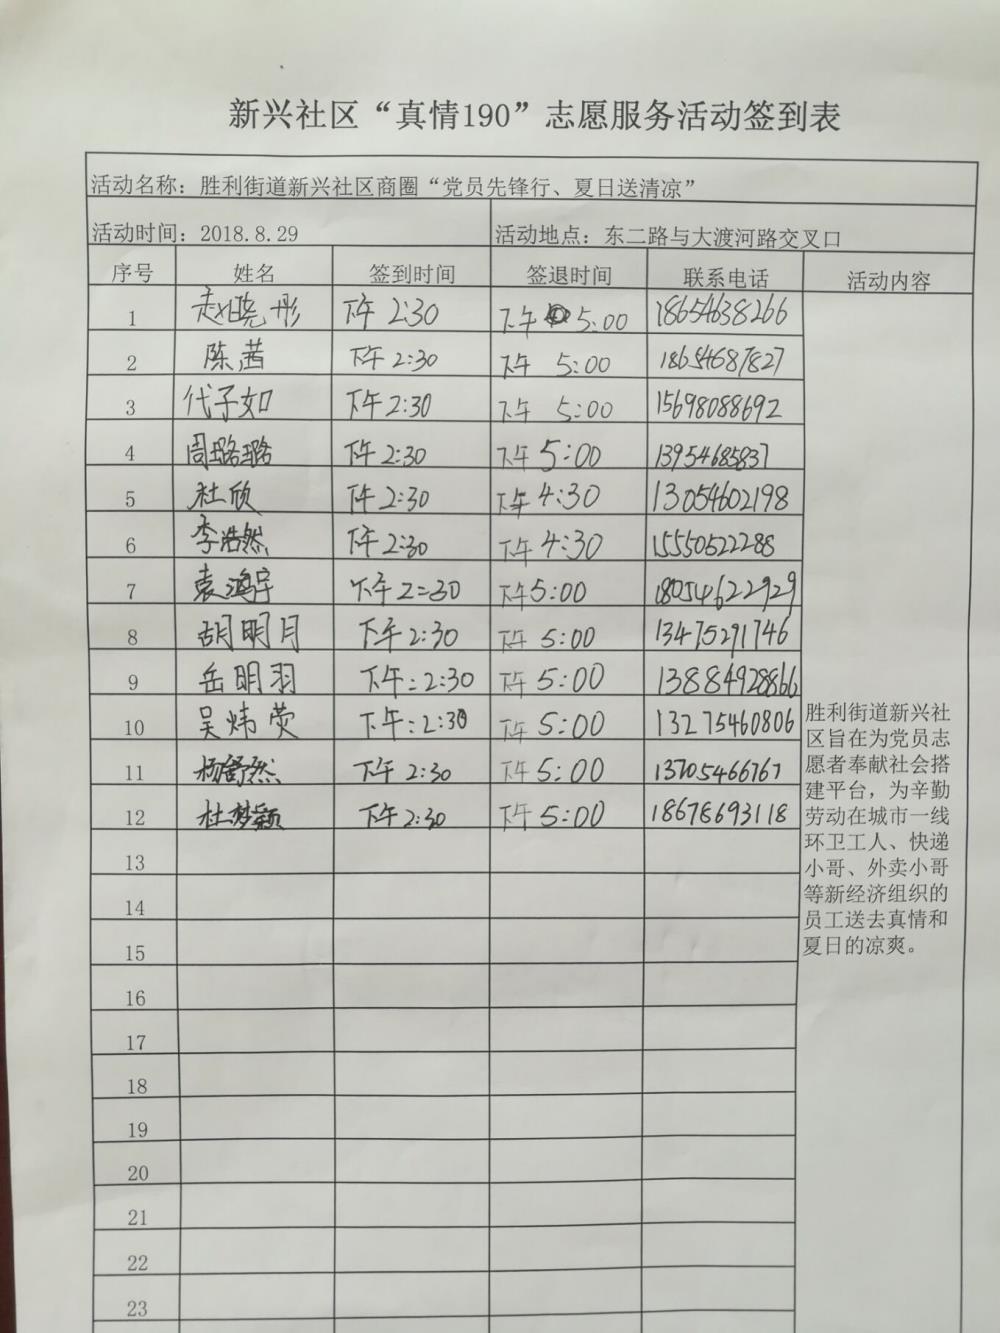 新兴社区“真情190”志愿服务活动签到表
活动名称：胜利街道新兴社区商圈“党员先锋行、夏日送清凉”
活动时间：2018.8.29 活动地点：东二路与大渡河路交叉口
序号 姓名 签到时间 签退时间 联系电话 活动内容
1 赵晓彤 下午 2:30 下午 5:00 18654638266
2 陈茜 下午 2:30 下午 5:00 18654687827
3 代子如 下午 2:30 下午 5:00 15698088692
4 周璐璐 下午 2:30 下午 5:00 13954685837
5 杜欣 下午 2:30 下午 4:30 13054602198
6 李浩然 下午 2:30 下午 4:30 15550522288
7 袁鸿宇 下午 2:30 下午 5:00 18054622929
8 胡明月 下午 2:30 下午 5:00 13475291746
9 岳明羽 下午：2:30 下午 5:00 13884928866
10 吴炜荧 下午：2:30 下午 5:00 13275460806
11 杨舒然 下午 2:30 下午 5:00 13705466767
12 杜梦颖 下午 2:30 下午 5:00 18678693118
13
14
15
16
17
18
19
20
21
22
23
胜利街道新兴社
区旨在为党员志
愿者奉献社会搭
建平台，为辛勤
劳动在城市一线
环卫工人、快递
小哥、外卖小哥
等新经济组织的
员工送去真情和
夏日的凉爽。